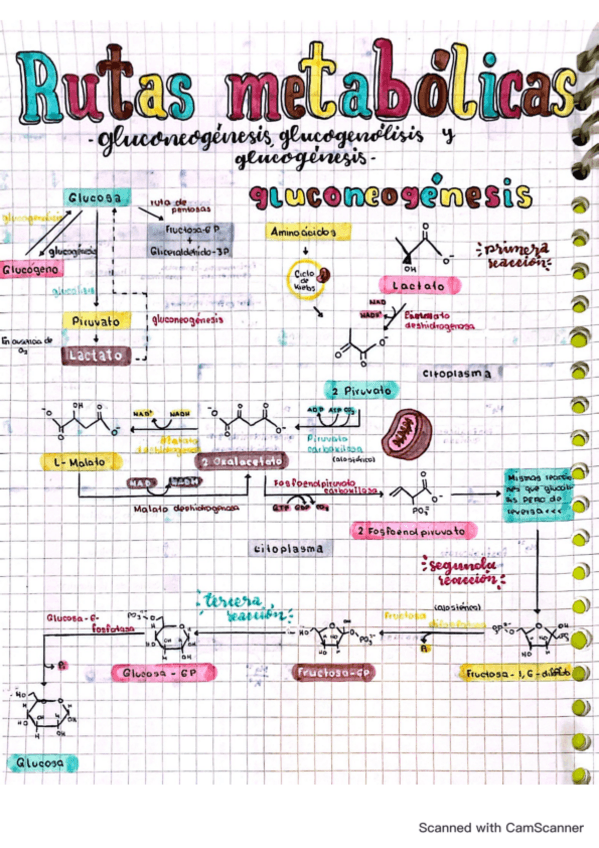 Rutas metabólicas
-gluconeogénesis, glucogenólisis y
glucogénesis-
gluconeogénesis
Glucosa
ruta de
pentosas
Fructosa-6P
+
Gliceraldehído-3P
glucogénesis
Glucógeno
glucólisis
Piruvato
gluconeogénesis
En ausencia de
O₂
Lactato
Aminoácidos
Ciclo
de
Krebs
OH
O⁻
Lactato
primera
reacción
NAD
NADH
deshidrogenasa
O⁻
Citoplasma
2 Piruvato
ADP ATP CO₂
Piruvato
carboxilasa
(alostérico)
NAD⁺ NADH
OH
L-Malato
2 Oxalacetato
NAD NADH
Malato deshidrogenasa
Fosfoenolpiruvato
carboxilasa
GTP GDP CO₂
PO₃²⁻
2 Fosfoenolpiruvato
Mismas
nes que
reversa<<<
citoplasma
segunda
reacción
tercera
reacción
(alostérico)
Fructosa
Pi
Glucosa-6-
fosfatasa
Pi
PO₃²⁻
Glucosa - 6P
Fructosa-6P
Fructosa-1,6-difosfato
HO
OH
Glucosa
Scanned with CamScanner